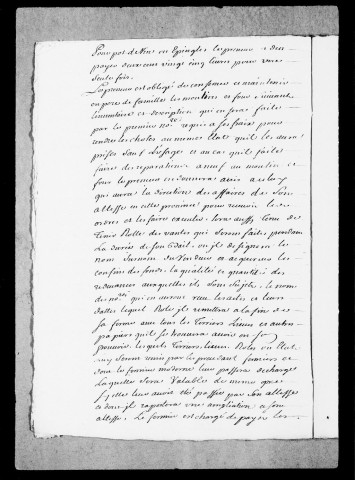 Pour pot de Vin ou Epingles le preneur a deu
payer deux cens vingt cinq livres pour une
seule fois.
Le preneur est obligé de conserver et maintenir
en pere de familles les moulins et fours, suivant
l'inventaire et description qui en sera faite
par le premier no.re requis a ses frais pour
rendre les choses au meme etat qu'il les aura
prises sauf l'usage et au cas qu'il faille
faire des reparations a neuf au moulin et
four le preneur en donnera avis a celuy
qui aura la direction des affaires de Son
altesse en cette province pour recevoir les
ordres et les faire executer. Sera aussy tenu de
tenir Rolle des ventes qui seront faites pendant
la durée de son Bail, ou il designera le
nom surnom du Vendeur et acquereur les
confins des fonds, la qualité et quantité des
redevances auxquelles ils sont sujets, le nom
du no.re qui en aura receu les actes et leur
dattes lequel Role il remettra a la fin de
sa ferme avec tous les Terriers Lieves et autres
papiers quil se trouvera avoir en son
pouvoir, lesquels Terriers, lieves, Rolle ou Etat
luy seront remis par le precedant fermier et
dont le fermier moderne leur passera decharge
laquelle sera Valable de meme que
si elle leur avoit eté passée par son altesse
et dont il raportera une ampliation a son
altesse. Le fermier est chargé de payer les